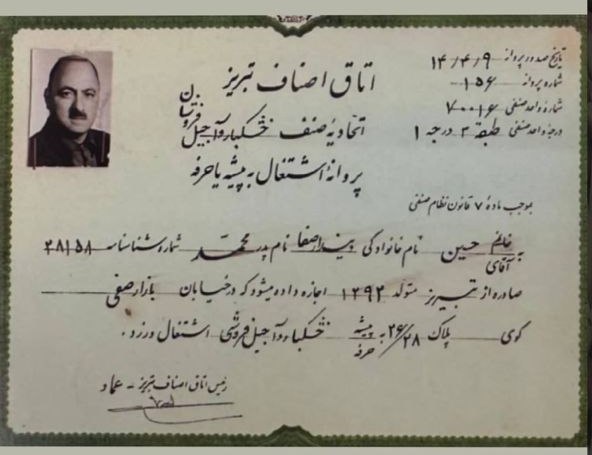 تاریخ صدور پروانه ۱۴/۴/۹
شماره پروانه ۱۵۶
شماره واحد صنفی ۷۰۰۱۶
درجه واحد صنفی طبقه ۲ درجه ۱
اتاق اصناف تبریز
اتحادیه صنف خشکبار و آجیل فروشان
پروانه اشتغال به پیشه یا حرفه
بموجب ماده ۷ قانون نظام صنفی
به خانم آقای حسین نام خانوادگی نام پدر محمد شماره شناسنامه ۲۸۱۵۸
صادره از تبریز متولد ۱۲۹۲ اجازه داده میشود که در خیابان بازار صفی
کوی پلاک ۲۶/۲۸ به پیشه حرفه خشکبار و آجیل فروشی اشتغال ورزد.
رئیس اتاق اصناف تبریز - عماد